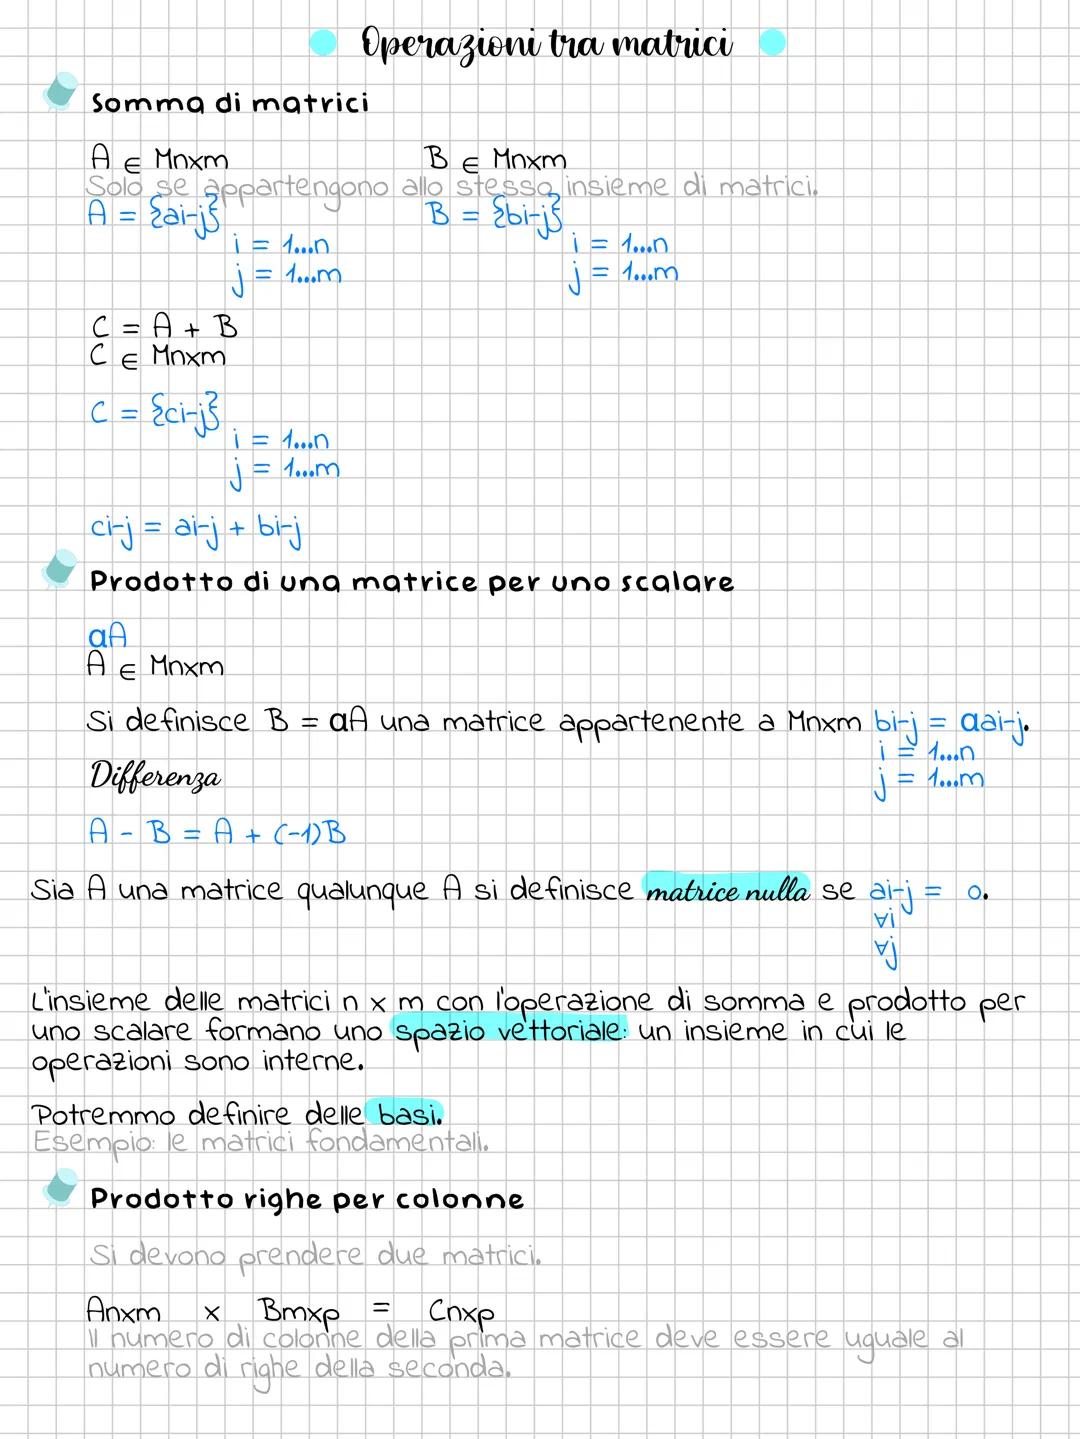 Operazioni tra matrici
Somma di matrici
A ∈ Mnxm B ∈ Mnxm
Solo se appartengono allo stesso insieme di matrici.
A = {ai-j} B = {bi-j}
i = 1...n i = 1...n
j = 1...m j = 1...m
C = A + B
C ∈ Mnxm
C = {ci-j}
i = 1...n
j = 1...m
ci-j = ai-j + bi-j
Prodotto di una matrice per uno scalare
αA
A ∈ Mnxm
Si definisce B = αA una matrice appartenente a Mnxm bi-j = αai-j.
i = 1...n
Differenza
j = 1...m
A - B = A + (-1)B
Sia A una matrice qualunque A si definisce matrice nulla se ai-j = 0.
∀i
∀j
L'insieme delle matrici n x m con l'operazione di somma e prodotto per
uno scalare formano uno spazio vettoriale: un insieme in cui le
operazioni sono interne.
Potremmo definire delle basi.
Esempio: le matrici fondamentali.
Prodotto righe per colonne
Si devono prendere due matrici.
Anxm x Bmxp = Cnxp
Il numero di colonne della prima matrice deve essere uguale al
numero di righe della seconda.